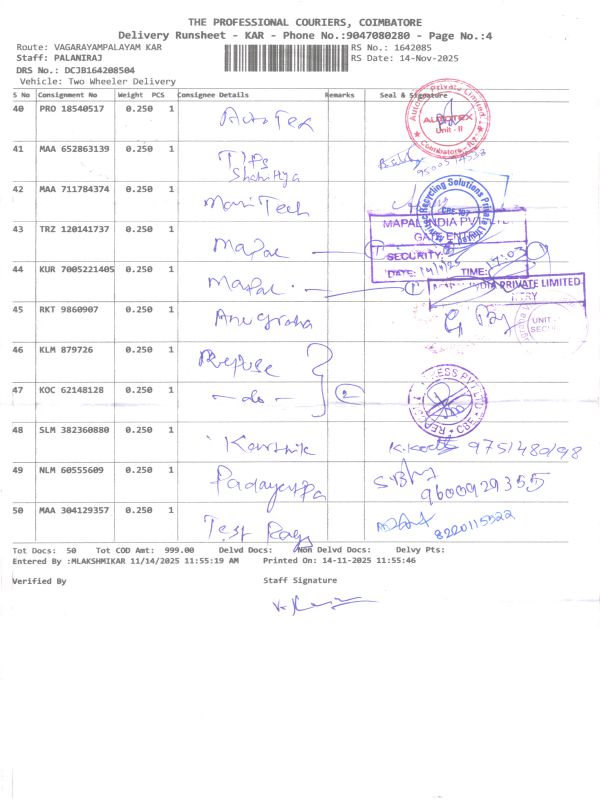 THE PROFESSIONAL COURIERS, COIMBATORE
Delivery Runsheet - KAR - Phone No.:9047080280 - Page No.:4
Route: VAGARAYAMPALAYAM KAR RS No.: 1642085
Staff: PALANIRAJ RS Date: 14-Nov-2025
DRS No.: DCJB164208504
Vehicle: Two Wheeler Delivery
S No Consignment No Weight PCS Consignee Details Remarks Seal & Signature
40 PRO 18540517 0.250 1 Auto Tex
Unit - II
41 MAA 652863139 0.250 1 TIPS
42 MAA 711784374 0.250 1 Mani Tech
Recycling Solutions Private Limited
43 TRZ 120141737 0.250 1 Mapal 1
MAPAL INDIA PV
SECURITY:
DATE: TIME: 17:03
44 KUR 7005221405 0.250 1 Mapal 1
INDIA PRIVATE LIMITED
45 RKT 9860907 0.250 1 Anugraha
UNIT
46 KLM 879726 0.250 1 Refuse
47 KOC 62148128 0.250 1 - do - 2
48 SLM 382360880 0.250 1 Karthik
49 NLM 60555609 0.250 1 Padayappa 9600929355
50 MAA 304129357 0.250 1 Test 8220115522
Tot Docs: 50 Tot COD Amt: 999.00 Delvd Docs: Non Delvd Docs: Delvy Pts:
Entered By :MLAKSHMIKAR 11/14/2025 11:55:19 AM Printed On: 14-11-2025 11:55:46
Verified By Staff Signature